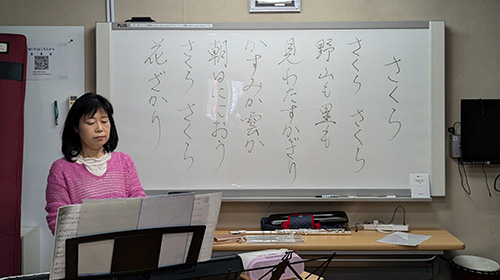 PLUS
さくら
さくら さくら
野山も里も
見わたすかぎり
かすみか雲か
朝日ににおう
さくら さくら
花ざかり